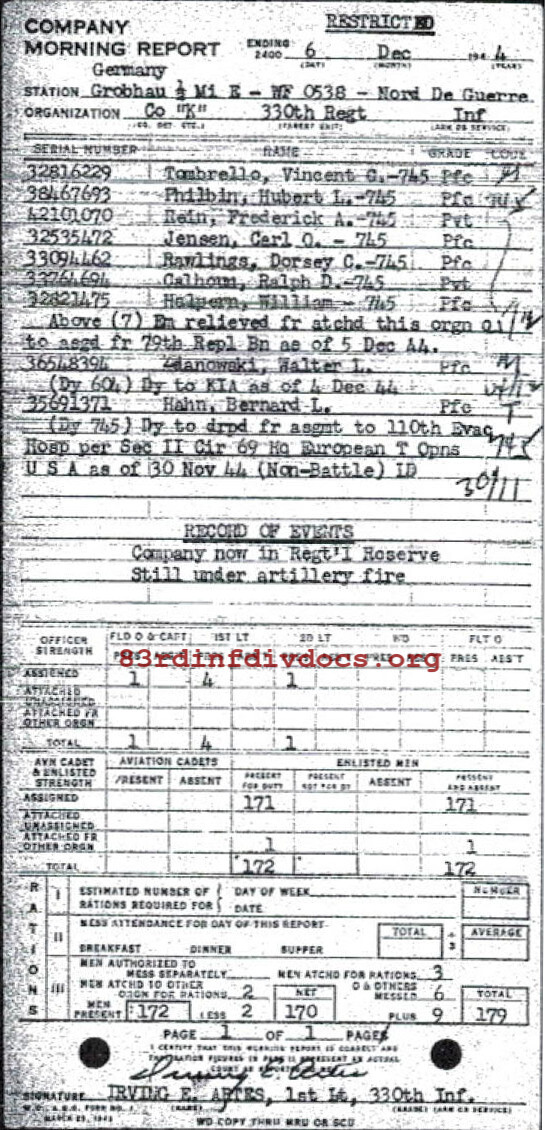 COMPANY
RESTRICTED
MORNING REPORT
ENDING 2400 6 Dec 194 4
(DAY) (MONTH) (YEAR)
Germany
STATION Grobhau ½ Mi E - WF 0538 - Nord De Guerre
ORGANIZATION Co "K" 330th Regt Inf
(CO. DET. ETC.) (PARENT UNIT) (ARM OR SERVICE)
SERIAL NUMBER NAME GRADE CODE
32816229 Tombrello, Vincent G.-745 Pfc
38467693 Philbin, Hubert L.-745 Pfc
42101070 Rein, Frederick A.-745 Pvt
32535472 Jensen, Carl O. - 745 Pfc
33094462 Rawlings, Dorsey C.-745 Pfc
33764694 Calhoun, Ralph D.-745 Pvt
32821475 Halpern, William - 745 Pfc
Above (7) Em relieved fr atchd this orgn
to asgd fr 79th Repl Bn as of 5 Dec 44.
36548394 Zdanowski, Walter L. Pfc
(Dy 604) Dy to KIA as of 4 Dec 44
35691371 Hahn, Bernard L. Pfc
(Dy 745) Dy to drpd fr asgmt to 110th Evac
Hosp per Sec II Cir 69 Hq European T Opns
U S A as of 30 Nov 44 (Non-Battle) LD
30/11
RECORD OF EVENTS
Company now in Regt'l Reserve
Still under artillery fire
OFFICER STRENGTH FLD O & CAPT 1ST LT 2D LT WO FLT O
PRES ABS'T
83rdinfdivdocs.org
ASSIGNED 1 4 1
ATTACHED UNASSIGNED
ATTACHED FR OTHER ORGN
TOTAL 1 4 1
AVN CADET & ENLISTED STRENGTH AVIATION CADETS ENLISTED MEN
PRESENT ABSENT PRESENT FOR DUTY PRESENT NOT FOR DY ABSENT PRESENT AND ABSENT
ASSIGNED 171 171
ATTACHED UNASSIGNED
ATTACHED FR OTHER ORGN 1 1
TOTAL 172 172
RATIONS
I ESTIMATED NUMBER OF RATIONS REQUIRED FOR DAY OF WEEK NUMBER
DATE
II MESS ATTENDANCE FOR DAY OF THIS REPORT TOTAL ÷ 3 AVERAGE
BREAKFAST DINNER SUPPER
III MEN AUTHORIZED TO MESS SEPARATELY MEN ATCHD FOR RATIONS 3
MEN ATCHD TO OTHER ORGN FOR RATIONS 2 NET O & OTHERS MESSED 6 TOTAL
MEN PRESENT 172 LESS 2 170 PLUS 9 179
PAGE 1 OF 1 PAGES
I CERTIFY THAT THIS MORNING REPORT IS CORRECT AND
THAT RATION FIGURES IN PART II REPRESENT AN ACTUAL
COUNT AS REPORTED
SIGNATURE IRVING E. ARTES, 1st Lt, 330th Inf.
W.D., A.G.O. FORM NO. 1 (NAME) (GRADE) (ARM OR SERVICE)
MARCH 25, 1943
WD COPY THRU MRU OR SCU